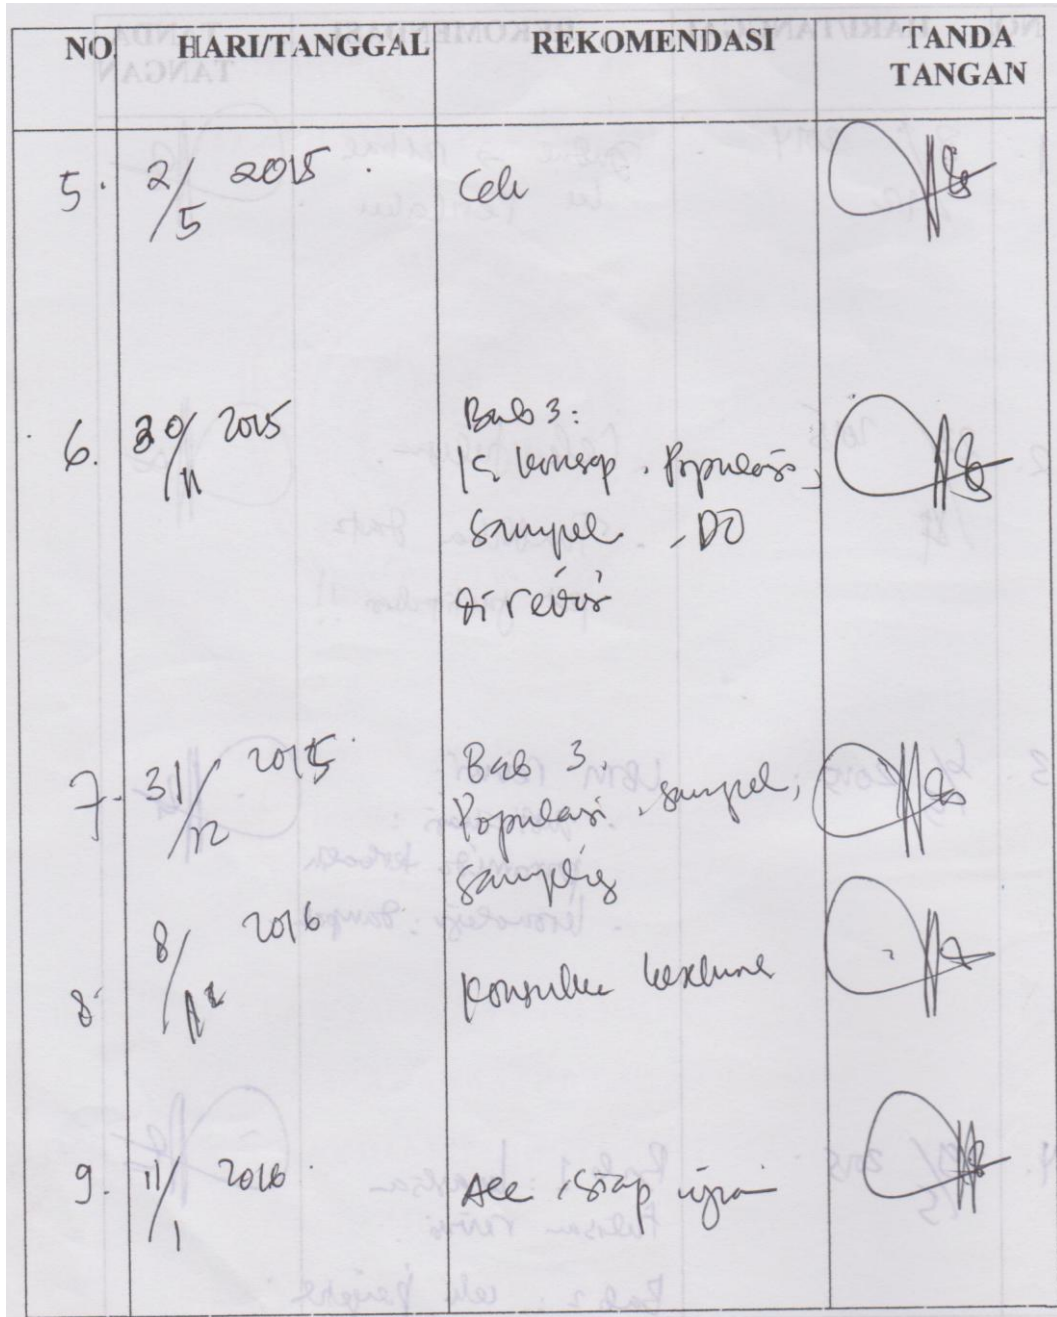 NO HARI/TANGGAL REKOMENDASI TANDA TANGAN
5. 2/5 2015 Cek
6. 30/11 2015 Bab 3:
K. konsep. Populasi,
Sampel. DO
di revisi
7. 31/12 2015 Bab 3.
Populasi. sampel,
sampling
8. 8/ 2016 Konsulke
9. 11/1 2016 Acc siap ujian